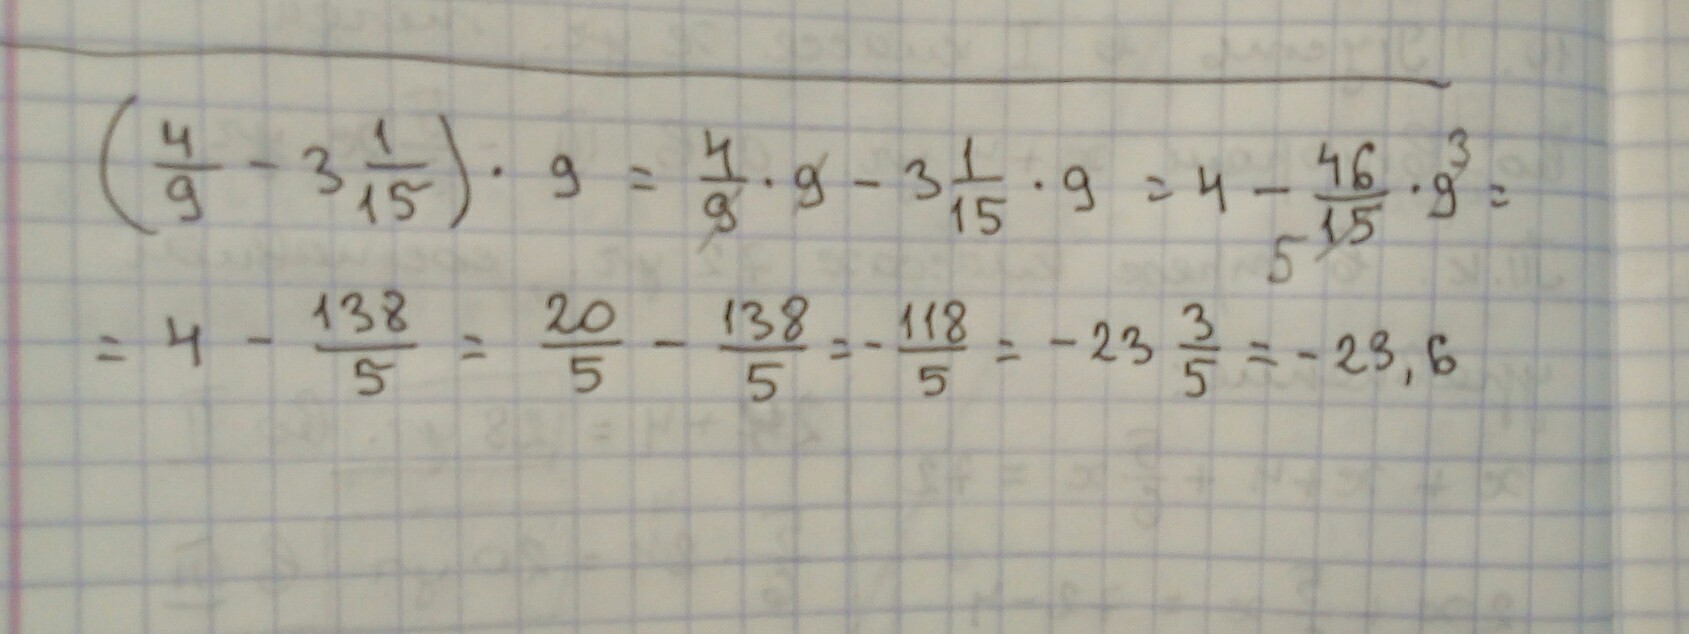 (4/9 - 3 1/15) · 9 = 4/9 · 9 - 3 1/15 · 9 = 4 - 46/15 5 · 9 3 =
= 4 - 138/5 = 20/5 - 138/5 = - 118/5 = - 23 3/5 = - 23,6